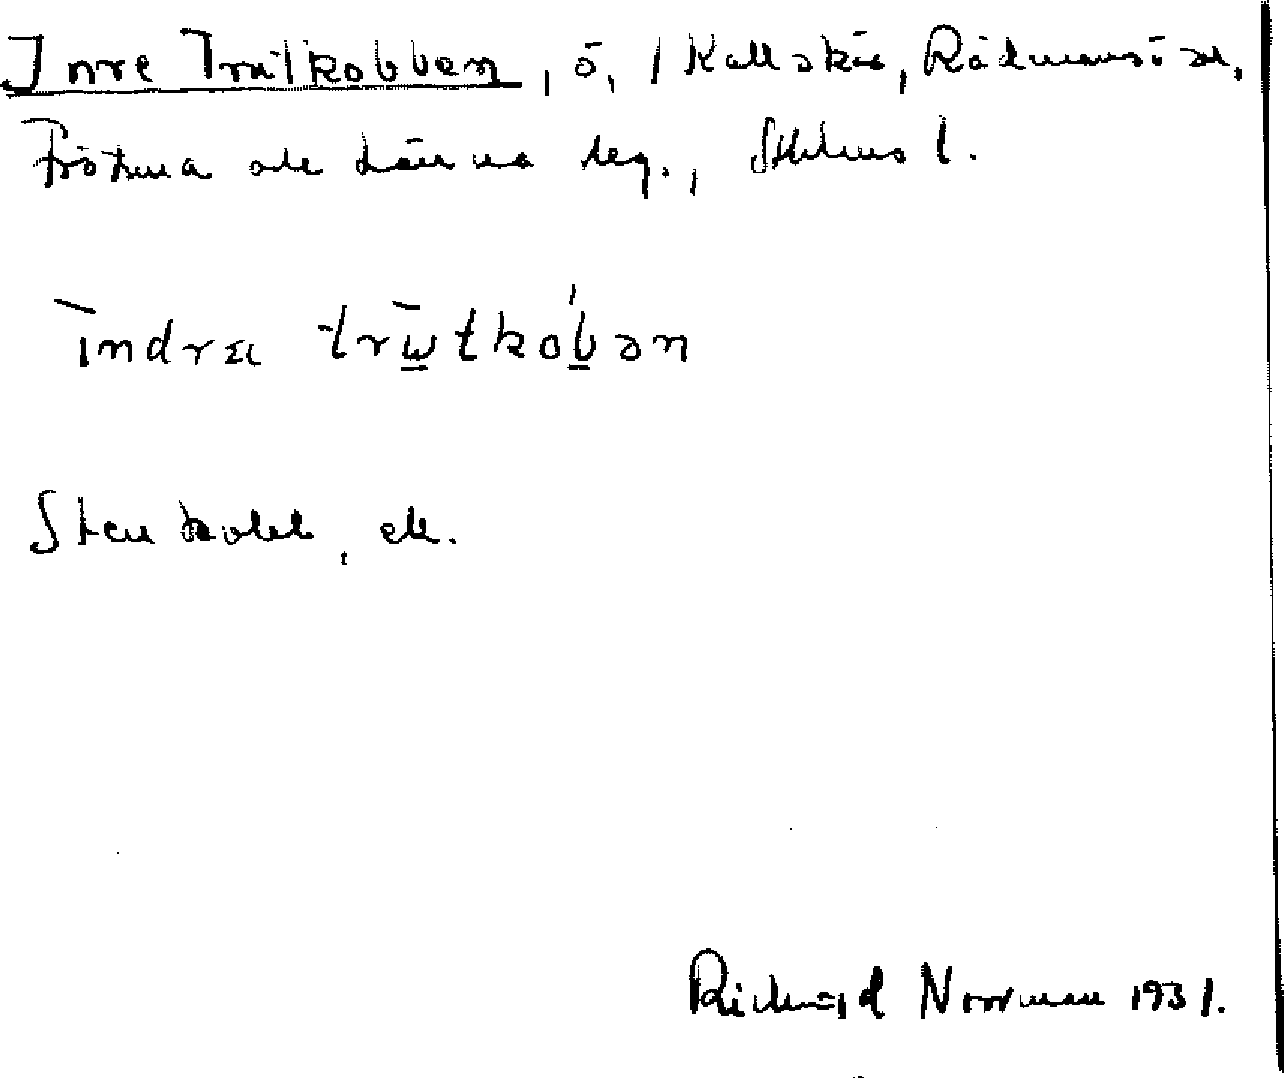 Inre Trutkobben, ö, i Kallskär, Rådmansö sn,
Frötuna och Länna skg., Sthlms l.
īndrɛ trūtkobən
Stenkobb, etc.
Richard Norrman 1931.